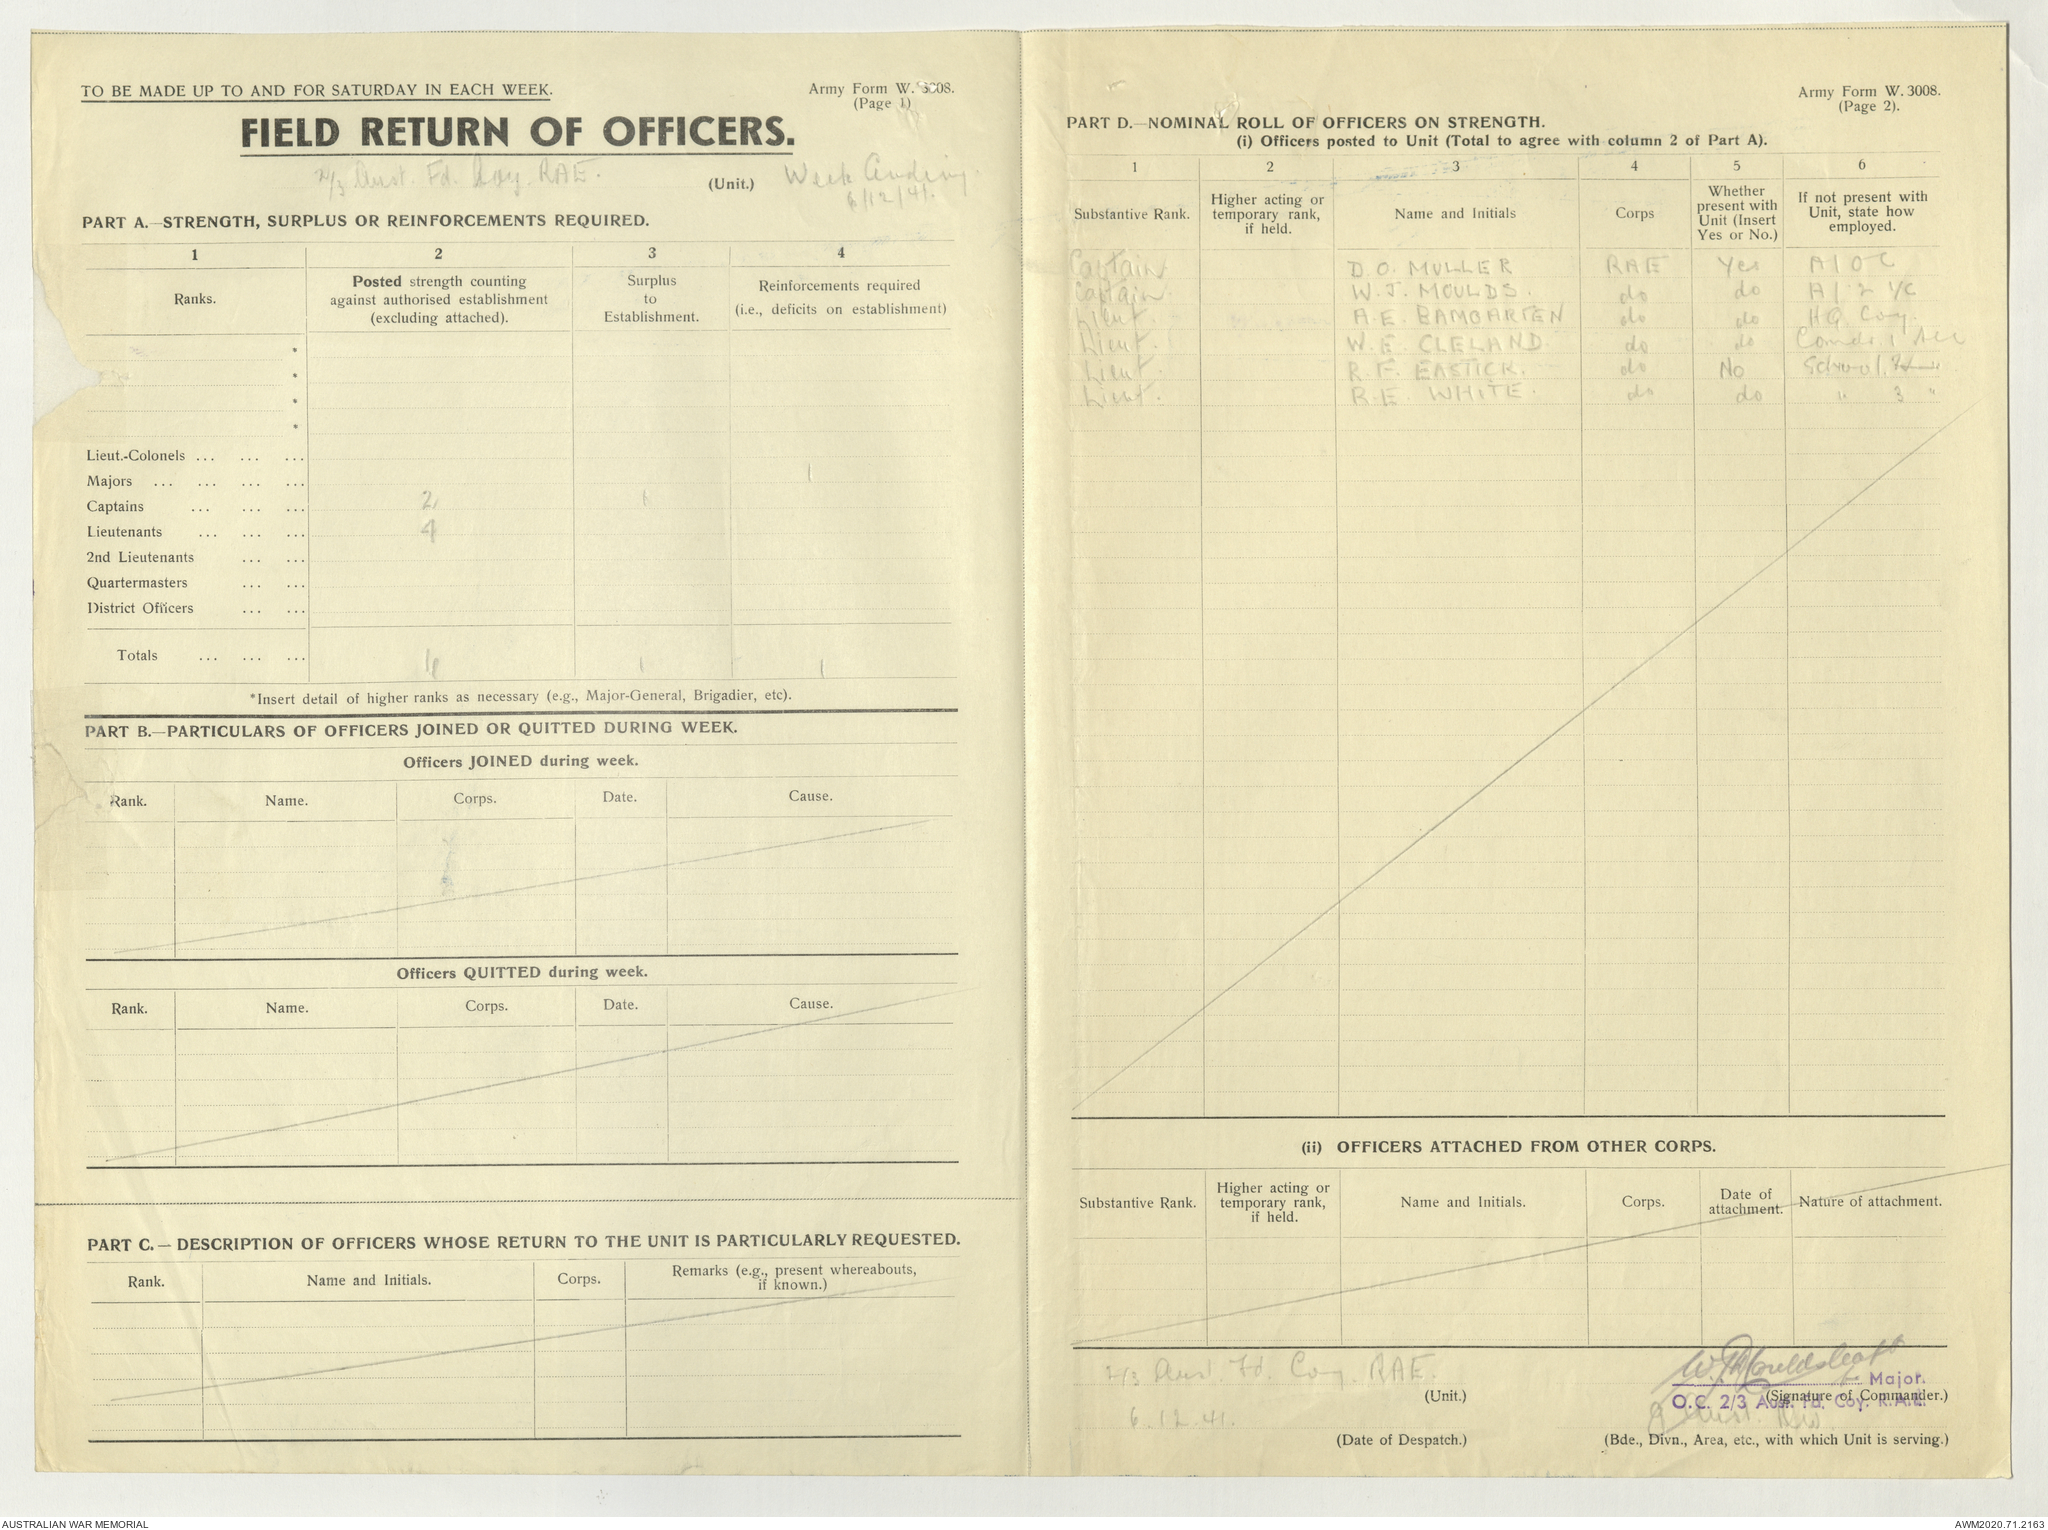 TO BE MADE UP TO AND FOR SATURDAY IN EACH WEEK.
Army Form W. 3008.
(Page 1)
FIELD RETURN OF OFFICERS.
2/3 Aust. Fd. Coy. RAE.
(Unit.)
Week Ending
6/12/41.
PART A.—STRENGTH, SURPLUS OR REINFORCEMENTS REQUIRED.
1 2 3 4
Ranks.
Posted strength counting against authorised establishment (excluding attached).
Surplus to Establishment.
Reinforcements required (i.e., deficits on establishment)
*
*
*
*
Lieut.-Colonels ... ... ...
Majors ... ... ... ... 1
Captains ... ... ... 2 1
Lieutenants ... ... ... 4
2nd Lieutenants ... ...
Quartermasters ... ...
District Officers ... ...
Totals ... ... ... 6 1 1
*Insert detail of higher ranks as necessary (e.g., Major-General, Brigadier, etc).
PART B.—PARTICULARS OF OFFICERS JOINED OR QUITTED DURING WEEK.
Officers JOINED during week.
Rank. Name. Corps. Date. Cause.
Officers QUITTED during week.
Rank. Name. Corps. Date. Cause.
PART C.— DESCRIPTION OF OFFICERS WHOSE RETURN TO THE UNIT IS PARTICULARLY REQUESTED.
Rank. Name and Initials. Corps. Remarks (e.g., present whereabouts, if known.)
Army Form W. 3008.
(Page 2).
PART D.—NOMINAL ROLL OF OFFICERS ON STRENGTH.
(i) Officers posted to Unit (Total to agree with column 2 of Part A).
1 2 3 4 5 6
Substantive Rank.
Higher acting or temporary rank, if held.
Name and Initials
Corps
Whether present with Unit (Insert Yes or No.)
If not present with Unit, state how employed.
Captain D. O. MULLER RAE Yes A/OC
Captain W. J. MOULDS. do do A/2 I/C
Lieut. A. E. BAMGARTEN do do HQ Coy.
Lieut. W. E. CLELAND. do do Comdr 1 Sec
Lieut. R. F. EASTICK. do No School.
Lieut. R. E. WHITE. do do " 3 "
(ii) OFFICERS ATTACHED FROM OTHER CORPS.
Substantive Rank.
Higher acting or temporary rank, if held.
Name and Initials.
Corps.
Date of attachment.
Nature of attachment.
2/3 Aust. Fd. Coy. RAE.
(Unit.)
W. J. Moulds Capt
Major.
(Signature of Commander.)
O.C. 2/3 Aust. Fd. Coy. R.A.E.
6.12.41.
(Date of Despatch.)
9 Aust. Div
(Bde., Divn., Area, etc., with which Unit is serving.)
AUSTRALIAN WAR MEMORIAL
AWM2020.71.2163